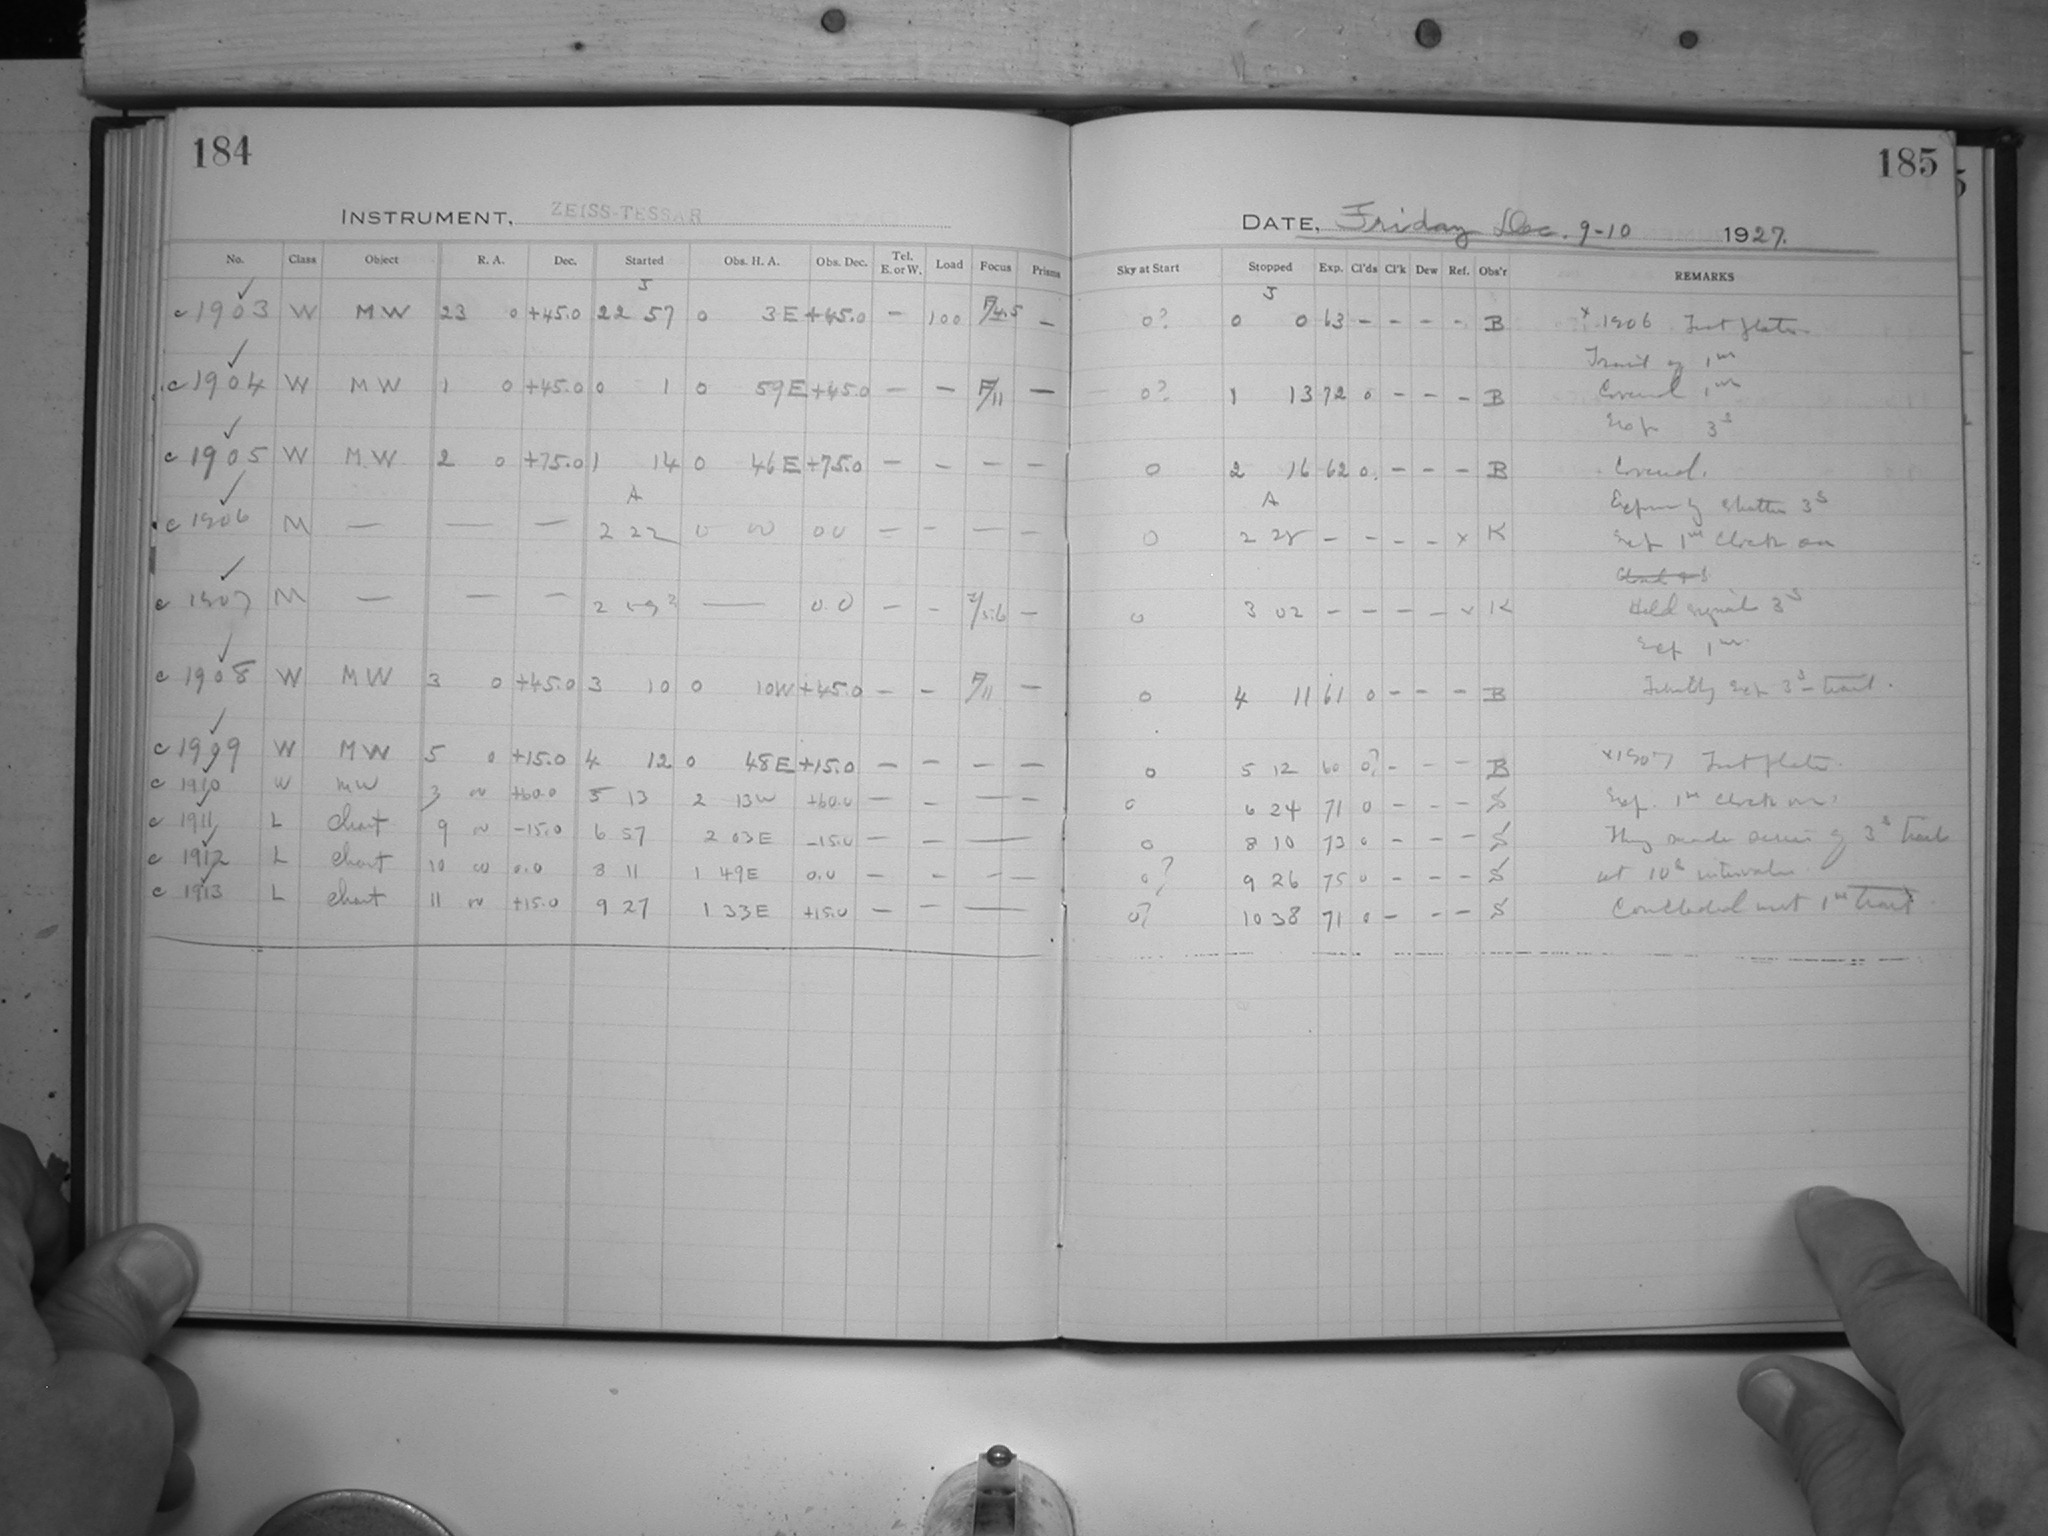 184
INSTRUMENT, ZEISS-TESSAR
No. Class Object R. A. Dec. Started Obs. H. A. Obs. Dec. Tel. E. or W. Load Focus Prisms
J
c 1903 W MW 23 0 +45.0 22 57 0 3E +45.0 – 100 F/4.5 –
c 1904 W MW 1 0 +45.0 0 1 0 59E +45.0 – – F/11 –
c 1905 W MW 2 0 +75.0 1 14 0 46E +75.0 – – – –
A
c 1906 M — — — 2 22 0 00 00 – – — –
c 1907 M — — — 2 — 0.0 – – F/5.6 –
c 1908 W MW 3 0 +45.0 3 10 0 10W +45.0 – – F/11 –
c 1909 W MW 5 0 +15.0 4 12 0 48E +15.0 – – – –
c 1910 W MW 3 00 +60.0 5 13 2 13W +60.0 – – — –
c 1911 L chart 9 00 -15.0 6 57 2 03E -15.0 – – —
c 1912 L chart 10 00 0.0 8 11 1 49E 0.0 – – – —
c 1913 L chart 11 00 +15.0 9 27 1 33E +15.0 – – —
185
DATE, Friday Dec. 9-10 1927.
Sky at Start Stopped Exp. Cl'ds Cl'k Dew Ref. Obs'r REMARKS
J
0? 0 0 63 – – – – B x 1906 Test plate
Trail of 1m
0? 1 13 72 0 – – – B Covered 1m
Exp 3s
0 2 16 62 0. – – – B Covered.
A Exposure by shutter 3s
0 2 28 – – – – x K Exp 1m Clock on
0 3 02 – – – – x K Held again 3s
Exp 1m
0 4 11 61 0 – – – B Exp 3s trail.
0 5 12 60 0? – – – B x1907 Test plate.
0 6 24 71 0 – – – S Exp. 1m clock on
0 8 10 73 0 – – – S Then made series of 3s trails
0? 9 26 75 0 – – – S at 10s intervals
0? 10 38 71 0 – – – S Concluded with 1m trail.